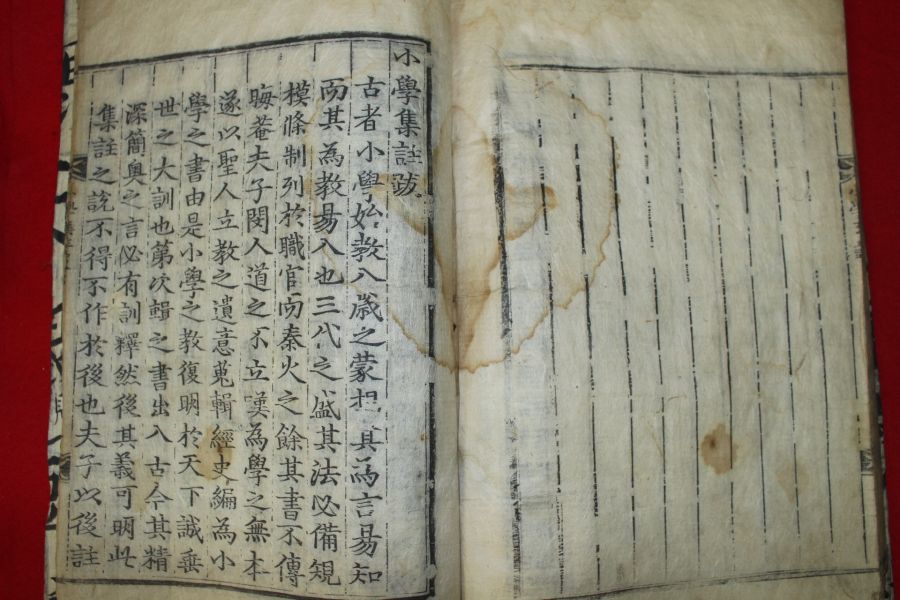 小學集註跋
古者小學始教八歲之蒙想其爲言易知
而其為教易入也三代之盛其法必備規
模條制列於職官而秦火之餘其書不傳
晦菴夫子閔人道之不立嘆為學之無本
遂以聖人立教之遺意蒐輯經史編為小
學之書由是小學之教復明於天下誠垂
世之大訓也第次輯之書出入古今其精
深簡奧之言必有訓釋然後其義可明此
集註之說不得不作於後也夫子以後註